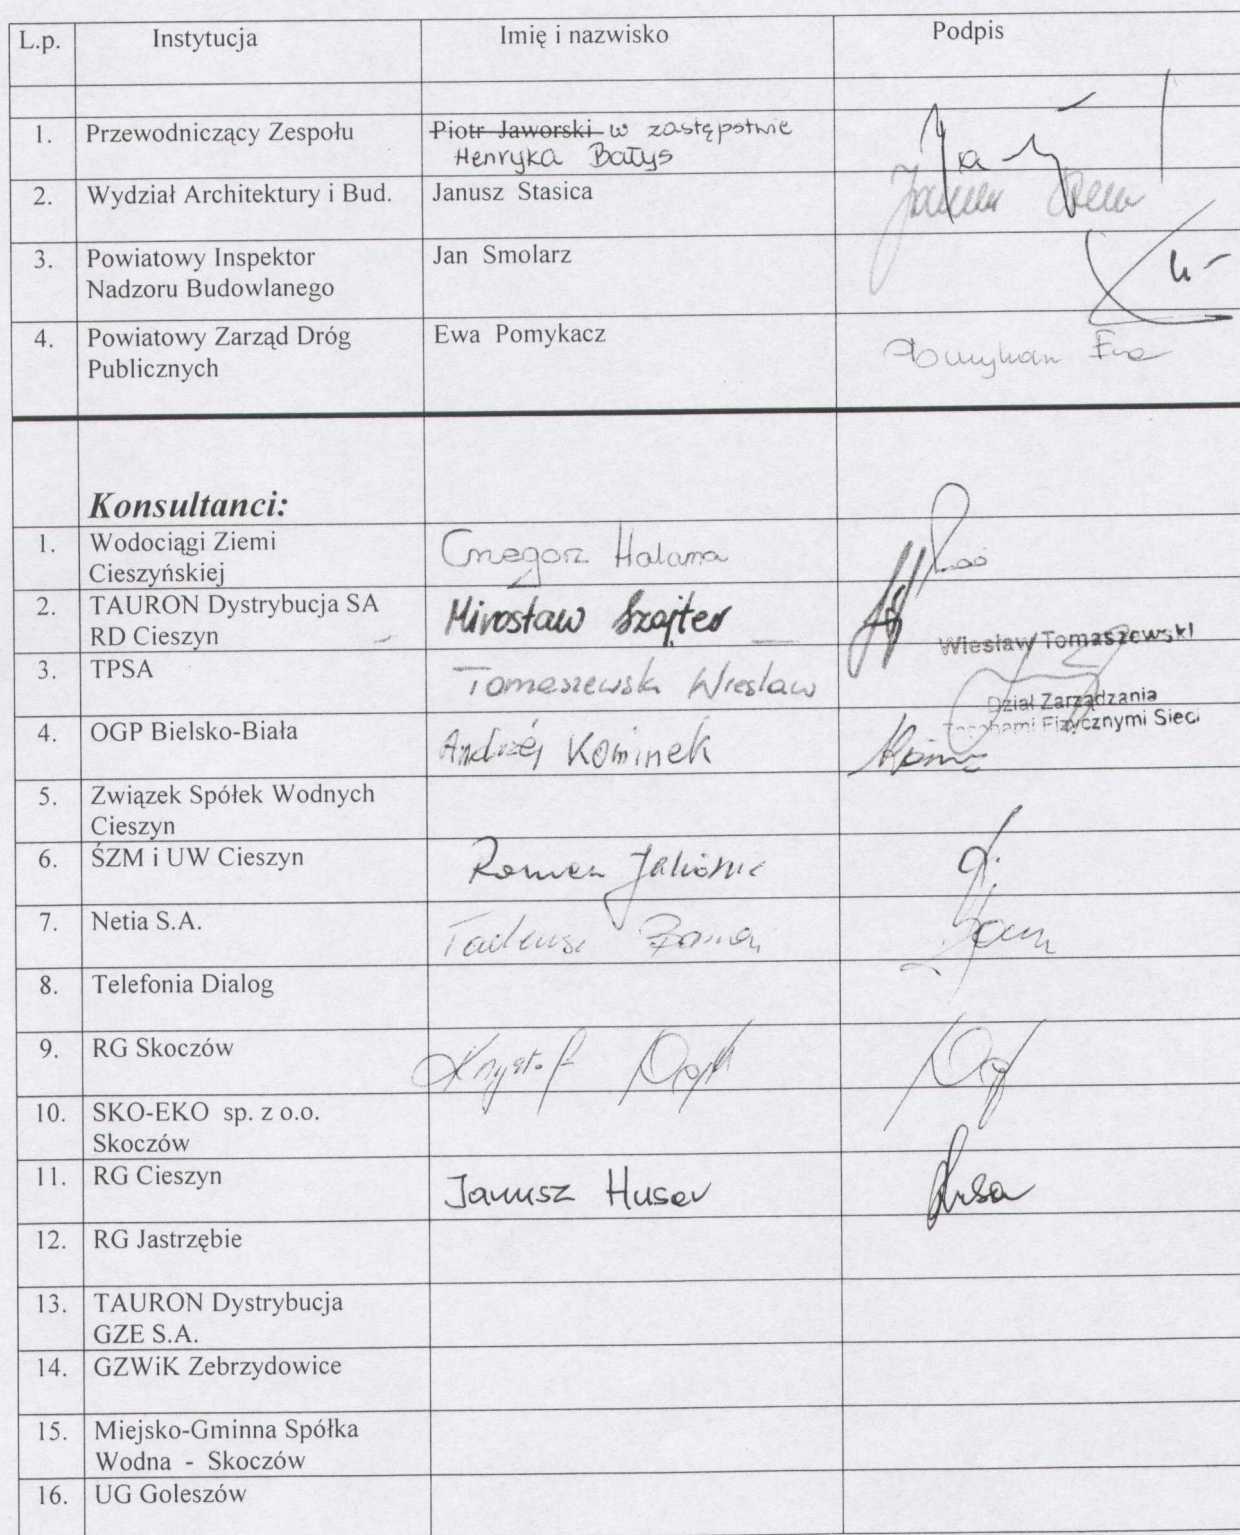 L.p. Instytucja Imię i nazwisko Podpis
1. Przewodniczący Zespołu Piotr Jaworski w zastępstwie
Henryka Bałys
2. Wydział Architektury i Bud. Janusz Stasica
3. Powiatowy Inspektor Jan Smolarz
Nadzoru Budowlanego
4. Powiatowy Zarząd Dróg Ewa Pomykacz
Publicznych
Konsultanci:
1. Wodociągi Ziemi Grzegorz Halama
Cieszyńskiej
2. TAURON Dystrybucja SA Mirosław Szajter
RD Cieszyn
Wiesław Tomaszewski
3. TPSA Tomaszewski Wiesław
Dział Zarządzania
Zasobami Fizycznymi Sieci
4. OGP Bielsko-Biała Andrzej Kominek
5. Związek Spółek Wodnych
Cieszyn
6. ŚZM i UW Cieszyn Roman
7. Netia S.A. Tadeusz
8. Telefonia Dialog
9. RG Skoczów Krzysztof
10. SKO-EKO sp. z o.o.
Skoczów
11. RG Cieszyn Janusz Husar
12. RG Jastrzębie
13. TAURON Dystrybucja
GZE S.A.
14. GZWiK Zebrzydowice
15. Miejsko-Gminna Spółka
Wodna - Skoczów
16. UG Goleszów